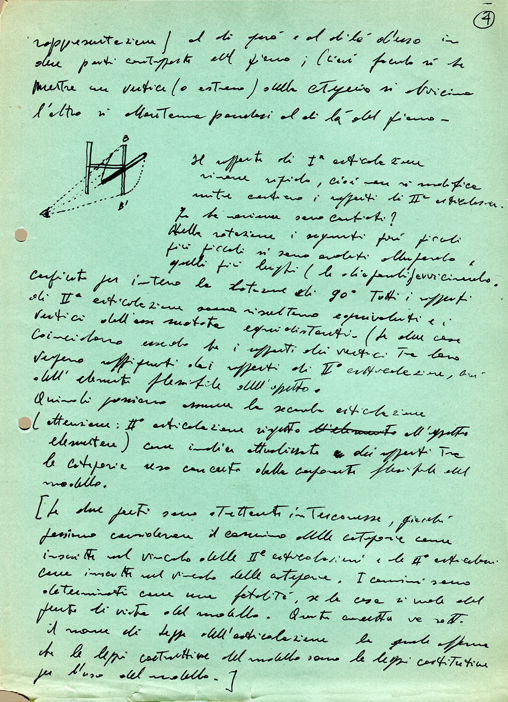 4
rappresentazione) al di qua e al di là d'uso in
due parti contrapposte del piano; (Ciò facendo si
mentre un vertice (o estremo) della categoria si avvicina
l'altro si allontana ponendosi al di là del piano –
B
B'
Il rapporto di Iª articolazione
rimane rigido, cioè non si modifica
mentre cambiano i rapporti di IIª articolazione.
In che maniera sono cambiati?
Nella rotazione i segmenti più piccoli
più piccoli si sono andati allungando e
quelli più lunghi (le diagonali) avvicinando.
per intero la rotazione di 90° tutti i rapporti
di IIª articolazione risultano equivalenti e i
vertici dell'asse equidistanti. (Le due cose
coincidono essendo i rapporti dei vertici tra loro
raffigurati dai rapporti di IIª articolazione, cioè
dall'elemento flessibile dell'oggetto.
Quindi possiamo assumere la seconda articolazione
(attenzione: IIª articolazione rispetto all'oggetto
elementare) come indice dei rapporti tra
le categorie reso concreto dalla componente flessibile del
modello.
[Le due parti sono strettamente interconnesse, giacché
possiamo considerare il cammino delle categorie come
inscritto nel vincolo delle IIª articolazioni e le IIª articolazioni
come inscritte nel vincolo delle categorie. I cammini sono
determinati come una fatalità, se la cosa si vede dal
punto di vista del modello. Questo va sotto
il nome di legge dell'articolazione la quale afferma
che le leggi costruttive del modello sono le leggi costitutive
per l'uso del modello.]